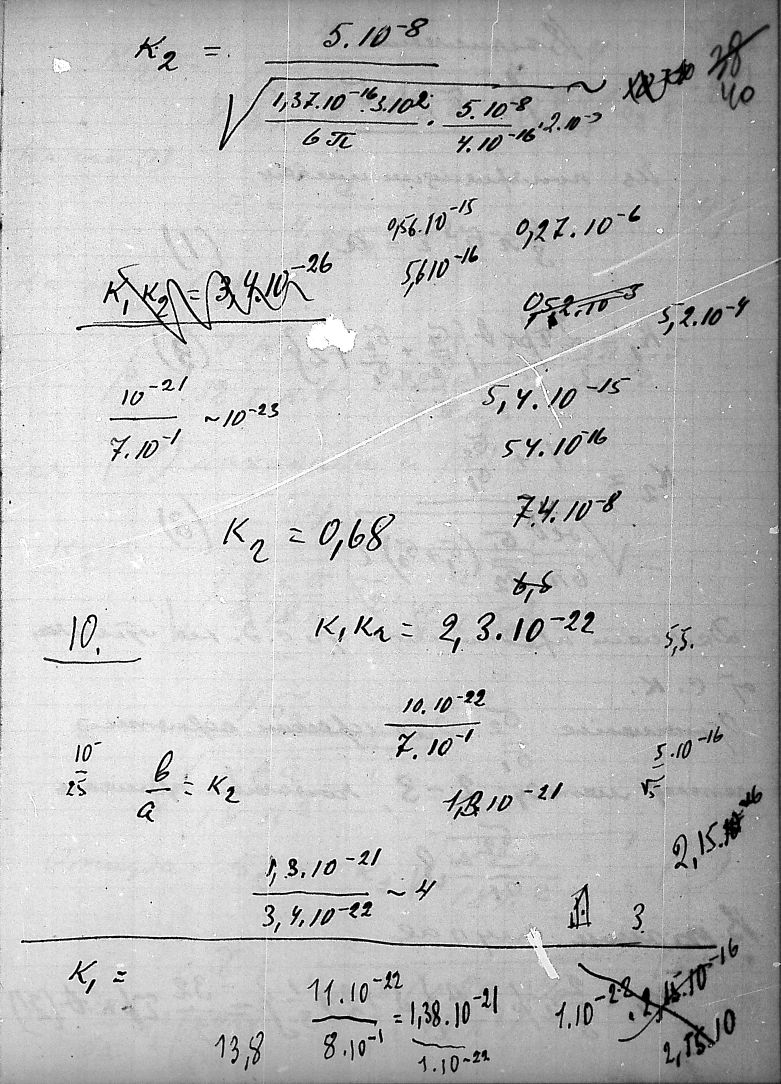 K₂ = 5.10⁻⁸
√ 1,37.10⁻¹⁶.3.10² / 6π . 5.10⁻⁸ / 4.10⁻¹⁶ .2.10⁻⁵ ~
38
40
0,56.10⁻¹⁵ 0,27.10⁻⁶
5,6 10⁻¹⁶
K₁ K₂ = 3,4.10⁻²⁶
5,2.10⁻⁴
10⁻²¹ / 7.10⁻¹ ~10⁻²³
5,4.10⁻¹⁵
54.10⁻¹⁶
7,4.10⁻⁸
K₂ = 0,68
6,5
10. K₁K₂ = 2,3.10⁻²² 5,5.
10.10⁻²² / 7.10⁻¹
10 / 25 b / a = K₂ 5.10⁻¹⁶ / √5
1,3.10⁻²¹
2,15.10⁻¹⁶
1,3.10⁻²¹ / 3,4.10⁻²² ~ 4
3
K₁ =
11.10⁻²² / 8.10⁻¹ = 1,38.10⁻²¹ / 1.10⁻²² 1.10⁻²⁸ . 2,15.10⁻¹⁶
13,8 2,15.10